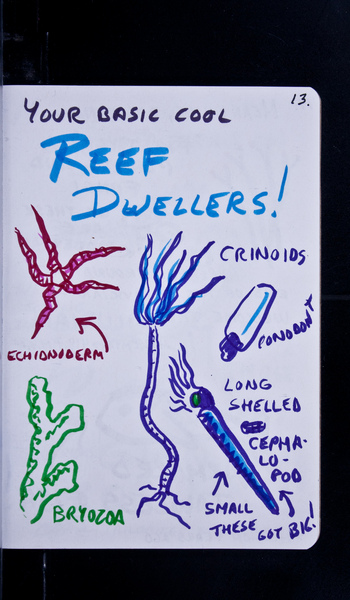 13.
YOUR BASIC COOL
REEF
DWELLERS!
CRINOIDS
CONODONT
ECHIONODERM
LONG
SHELLED
CEPHA-
LO-
POD
SMALL
THESE GOT BIG!
BRYOZOA